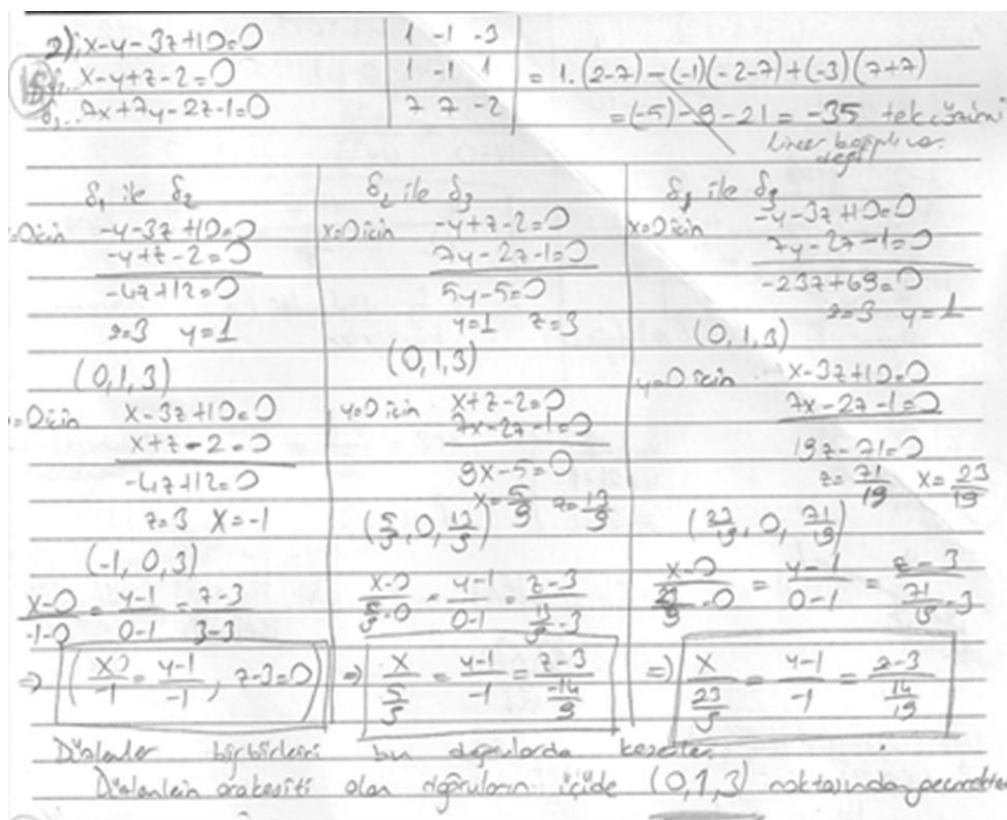 2) x-y-3z+10=0
x-y+z-2=0
7x+7y-2z-1=0
1 -1 -3
1 -1 1
7 7 -2
= 1.(2-7)-(-1)(-2-7)+(-3)(7+7)
=(-5)-9-21 = -35 tek çözüm
lineer bağımlı değil
δ₁ ile δ₂
=0 için -y-3z+10=0
-y+z-2=0
-4z+12=0
z=3 y=1
(0,1,3)
=0 için x-3z+10=0
x+z-2=0
-4z+12=0
z=3 x=-1
(-1,0,3)
x-0/-1-0 = y-1/0-1 = z-3/3-3
⇒ (x/-1 = y-1/-1, z-3=0)
δ₂ ile δ₃
x=0 için -y+z-2=0
7y-2z-1=0
5y-5=0
y=1 z=3
(0,1,3)
y=0 için x+z-2=0
7x-2z-1=0
9x-5=0
x=5/9 z=13/9
(5/9, 0, 13/9)
x-0/5/9-0 = y-1/0-1 = z-3/13/9-3
⇒ x/5/9 = y-1/-1 = z-3/-14/9
δ₁ ile δ₃
x=0 için -y-3z+10=0
7y-2z-1=0
-23z+69=0
z=3 y=1
(0,1,3)
y=0 için x-3z+10=0
7x-2z-1=0
19z-71=0
z=71/19 x=23/19
(23/19, 0, 71/19)
x-0/23/19-0 = y-1/0-1 = z-3/71/19-3
⇒ x/23/9 = y-1/-1 = z-3/14/19
Düzlemler birbirlerini bu doğrularda keserler.
Düzlemlein arakesiti olan doğruların üçüde (0,1,3) noktasından geçmekte